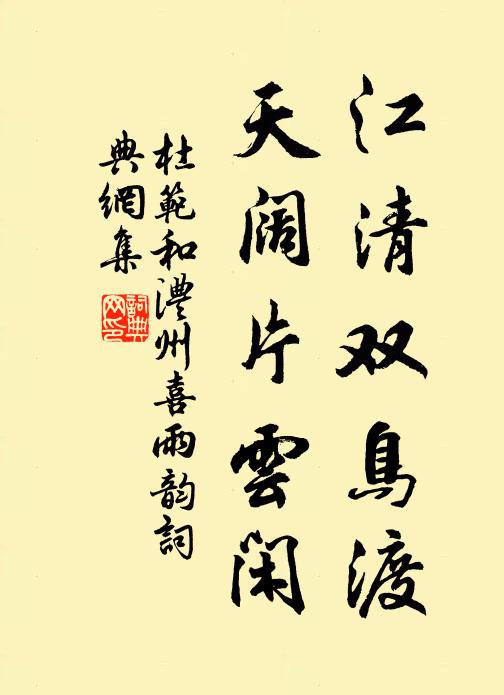 江清双鳥渡
天阔片雲闲
杜範和澧州喜雨韵詞
典網集
詞典網印